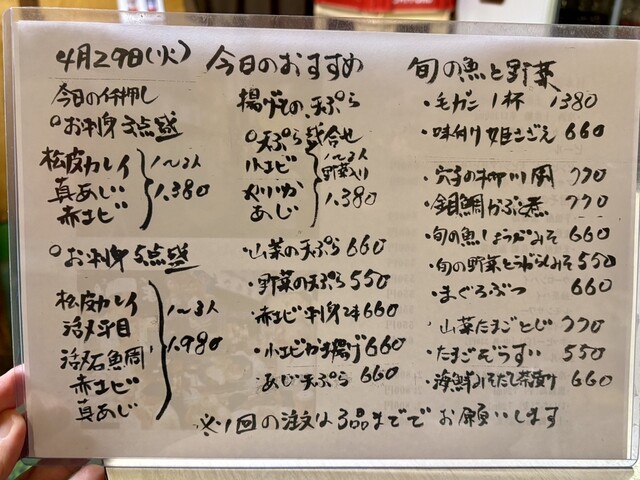 4月29日(火) 今日のおすすめ
今日の一押し
○お刺身 3点盛
松皮カレイ
真あじ
赤エビ
1〜2人
1.380
○お刺身 5点盛
松皮カレイ
活〆平目
活〆石魚周
赤エビ
真あじ
1〜3人
1.980
揚げもの、天ぷら
○天ぷら盛合せ
小エビ
メリイカ
あじ
1〜2人
野菜入り
1.380
・山菜の天ぷら 660
・野菜の天ぷら 550
・赤エビ刺身2本 660
・小エビかき揚げ 660
・あじ天ぷら 660
旬の魚と野菜
・毛ガニ 1杯 1380
・味付け姫さざえ 660
・穴子の柳川風 770
・金目鯛かぶと煮 770
・旬の魚しょうがみそ 660
・旬の野菜とうがらしみそ 550
・まぐろぶつ 660
・山菜たまごとじ 770
・たまごぞうすい 550
・海鮮みそだし茶漬け 660
※1回の注文は3品まででお願いします